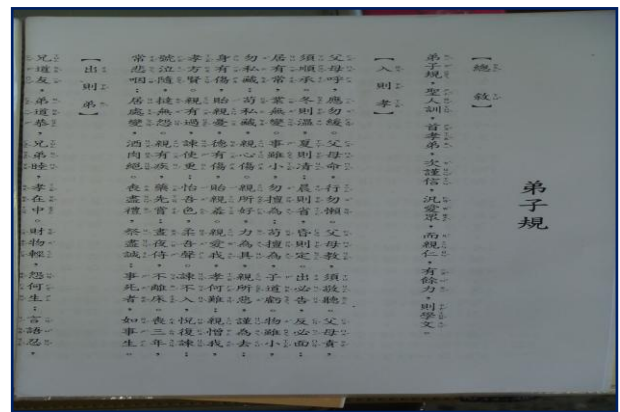 弟子規
【總敘】
弟子規，聖人訓。首孝弟，次謹信。汎愛眾，而親仁。有餘力，則學文。
【入則孝】
父母呼，應勿緩。父母命，行勿懶。父母教，須敬聽。父母責，
須順承。冬則溫，夏則凊。晨則省，昏則定。出必告，反必面。
居有常，業無變。事雖小，勿擅為。苟擅為，子道虧。物雖小，
勿私藏。苟私藏，親心傷。親所好，力為具。親所惡，謹為去。
身有傷，貽親憂。德有傷，貽親羞。親愛我，孝何難。親憎我，
孝方賢。親有過，諫使更。怡吾色，柔吾聲。諫不入，悅復諫。
號泣隨，撻無怨。親有疾，藥先嘗。晝夜侍，不離床。喪三年，
常悲咽。居處變，酒肉絕。喪盡禮，祭盡誠。事死者，如事生。
【出則弟】
兄道友，弟道恭。兄弟睦，孝在中。財物輕，怨何生。言語忍，